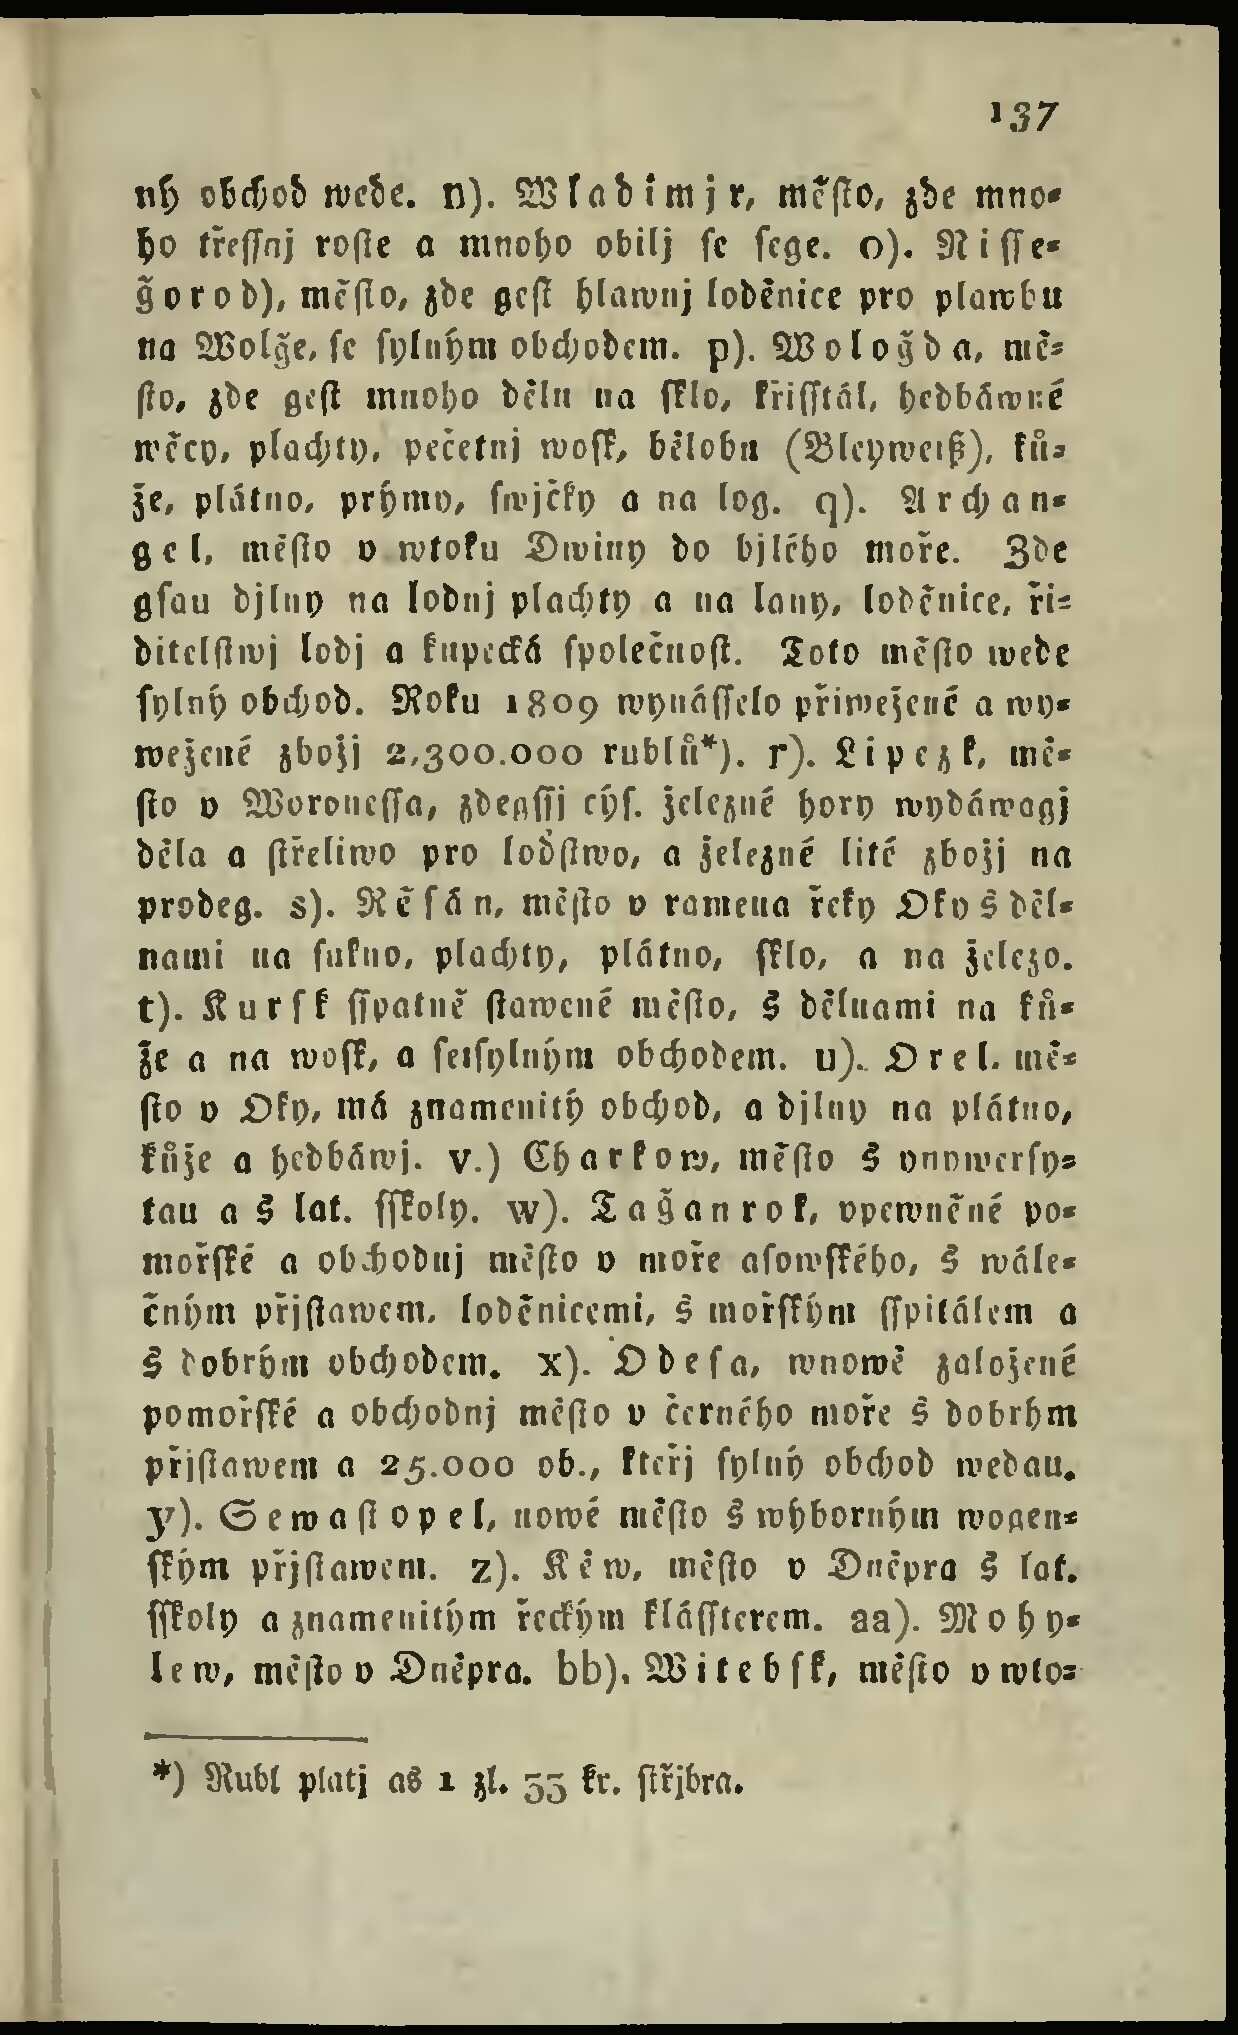 137
ný obchod wede. n). Wladimjr, město, zde mno-
ho třeſſnj roſte a mnoho obilj ſe ſege. o). Niſſe-
ǧorod), město, zde geſt hlawnj loděnice pro plawbu
na Wolǧe, ſe ſylným obchodem. p). Woloǧda, mě-
ſto, zde geſt mnoho děln na ſklo, křiſſtál, hedbáwné
wěcy, plachty, pečetnj woſk, bělobu (Bleyweiß), ků-
že, plátno, prýmy, ſwjčky a na log. q). Archan-
gel, měſto v wtoku Dwiny do bjlého moře. Zde
gſau djlny na lodnj plachty a na lany, loděnice, ři-
ditelſtwj lodj a kupecká ſpolečnoſt. Toto měſto wede
ſylný obchod. Roku 1809 wynáſſelo přiwežené a wy-
wežené zbožj 2,300.000 rublů*). r). Lipezk, mě-
ſto v Woroneſſa, zdegſſj cýſ. železné hory wydáwagj
děla a ſtřeliwo pro loďſtwo, a železné lité zbožj na
prodeg. s). Rěſán, měſto v ramena řeky Oky s děl-
nami na ſukno, plachty, plátno, ſklo, a na železo.
t). Kurſk ſſpatně ſtawené měſto, s dělnami na ků-
že a na woſk, a ſeſylným obchodem. u). Orel, mě-
ſto v Oky, má znamenitý obchod, a djlny na plátno,
kůže a hedbáwj. v.) Charkow, měſto s vnywerſy-
tau a s lat. ſſkoly. w). Taǧanrok, vpewněné po-
mořſké a obchodnj měſto v moře aſowſkého, s wále-
čným přjſtawem, loděnicemi, s mořſkým ſſpitálem a
s dobrým obchodem. x). Odeſa, wnowě založené
pomořſké a obchodnj měſto v černého moře s dobrým
přjſtawem a 25.000 ob., kteřj ſylný obchod wedau.
y). Sewaſtopel, nowé měſto s wýborným wogen-
ſkým přjſtawem. z). Kěw, měſto v Dněpra s lat.
ſſkoly a znamenitým řeckým kláſſterem. aa). Mohy-
lew, měſto v Dněpra. bb). Witebſk, měſto v wto-
*) Rubl platj as 1 zl. 33 kr. ſtřjbra.